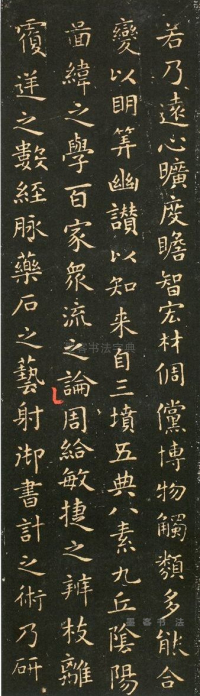 若乃遠心曠度贍智宏材倜儻博物觸類多能合
變以明筭幽讚以知来自三墳五典八素九丘陰陽
啚緯之學百家衆流之論周給敏捷之辨枝離
覆逆之數經脉藥石之藝射御書計之術乃研
墨客书法字典
墨客书法